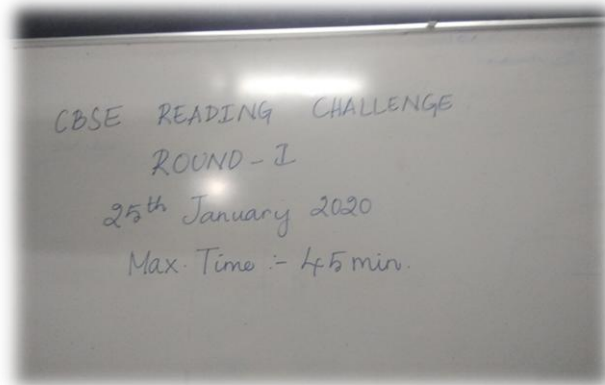 CBSE READING CHALLENGE
ROUND - I
25th January 2020
Max. Time :- 45 min.